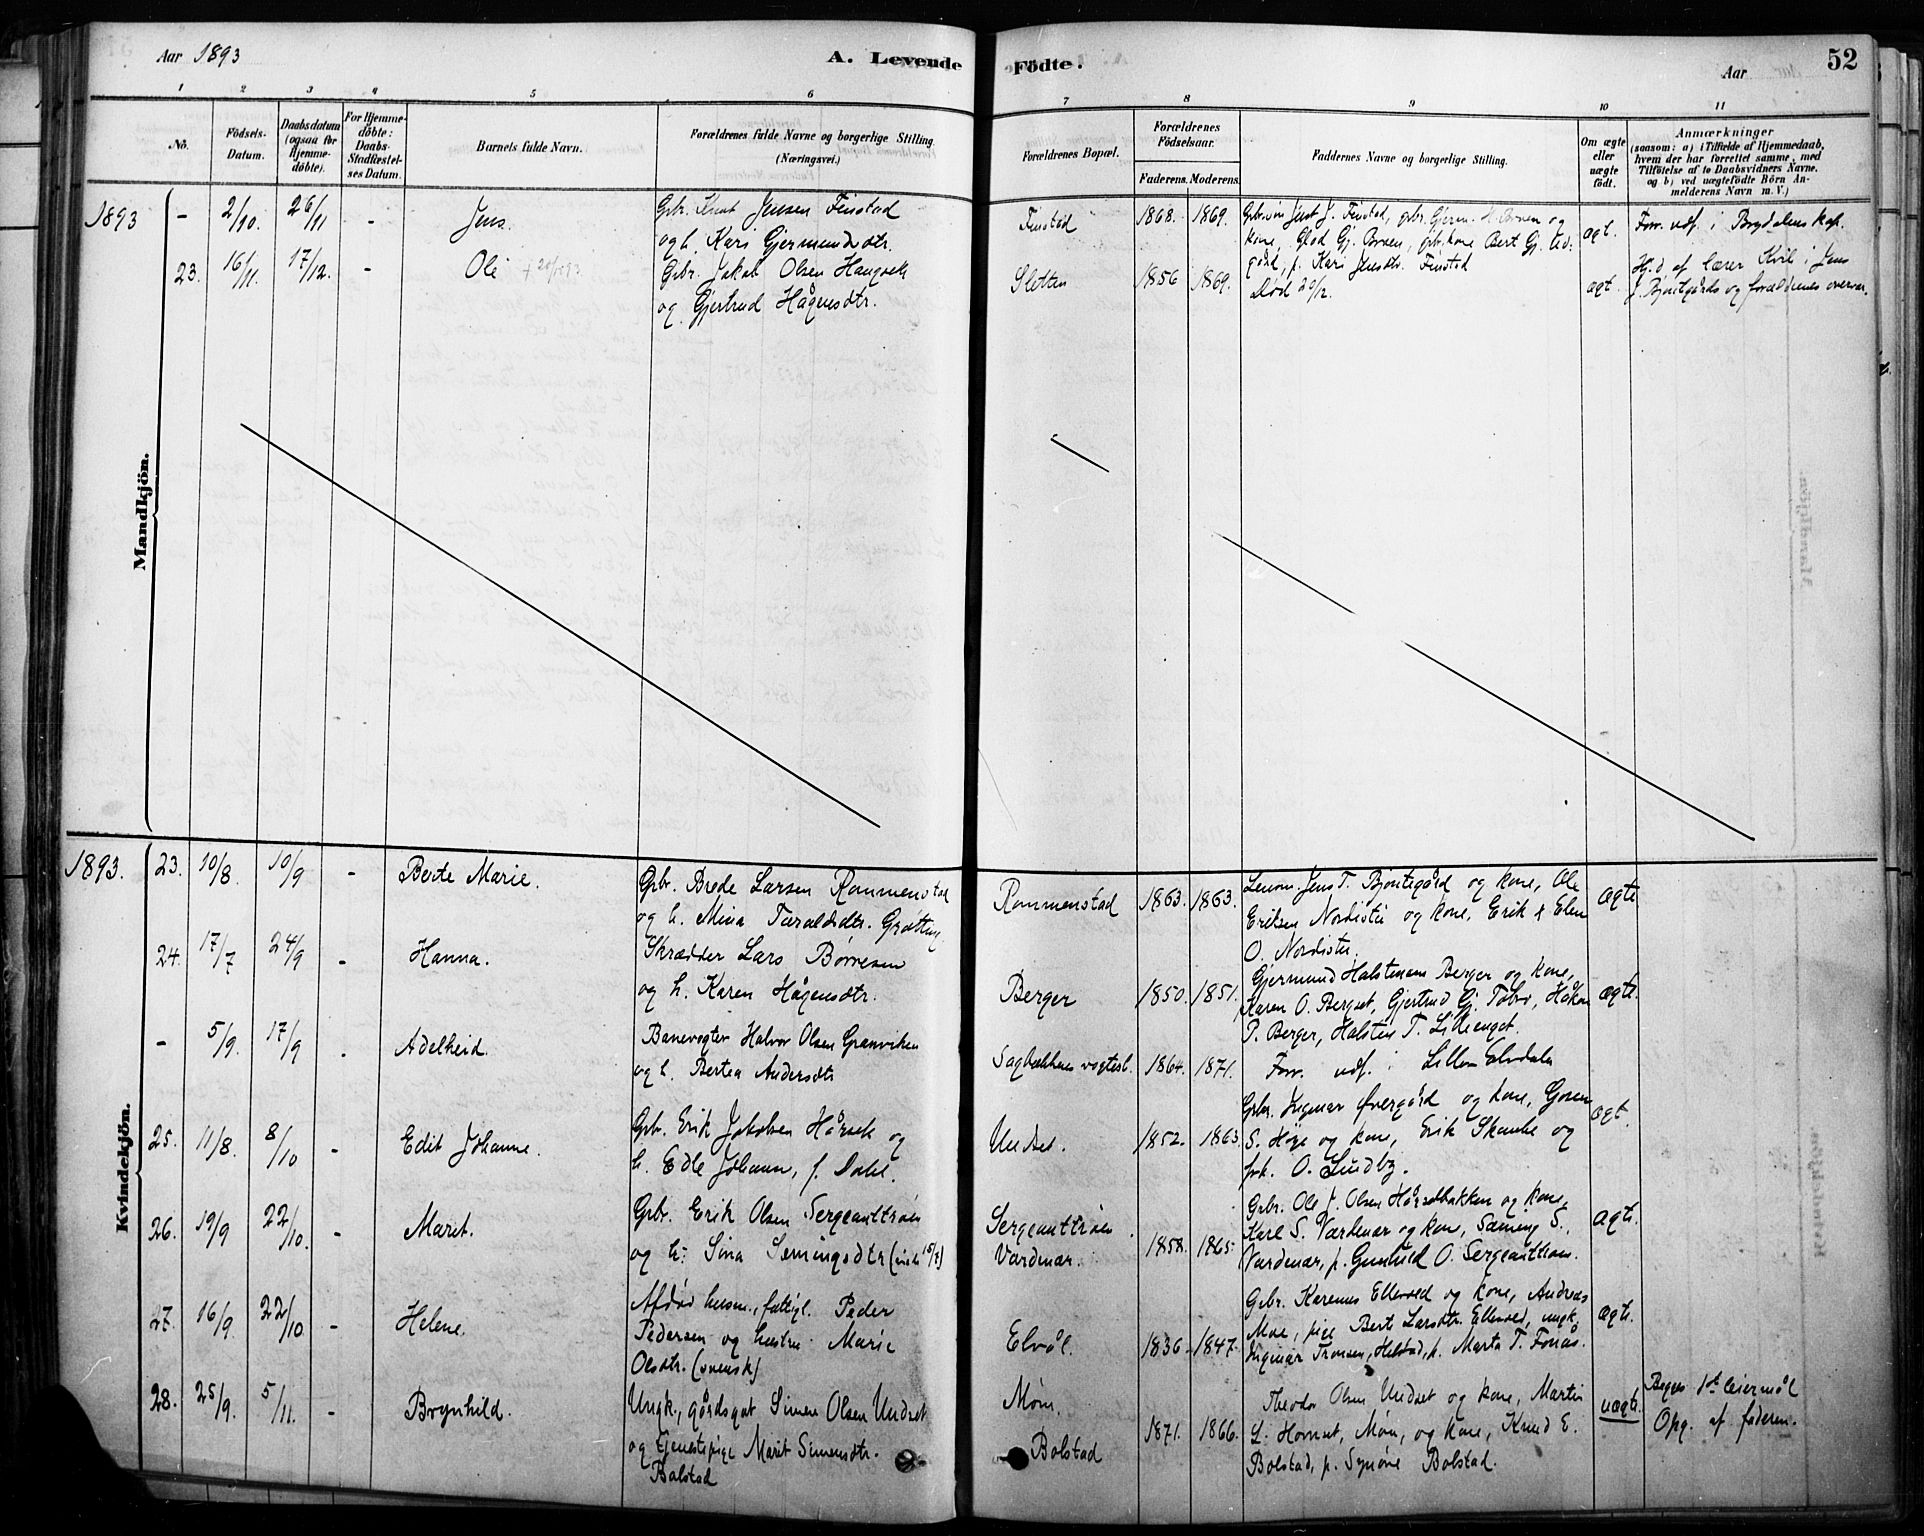 Aar 1893
A. Levende Födte.
Aar
52
1 2 3 4 5 6 7 8 9 10 11
No.
Födsels-
Datum.
Daabsdatum
(ogsaa for
Hjemme-
döbte).
For Hjemme-
döbte:
Daabs-
Stadfæstel-
ses Datum.
Barnets fulde Navn.
Forældrenes fulde Navne og borgerlige Stilling.
(Næringsvei.)
Forældrenes Bopæl.
Forældrenes
Födselsaar.
Faderens. Moderens.
Faddernes Navne og borgerlige Stilling.
Om ægte
eller
uægte
født.
Anmærkninger
(saasom: a) i Tilfælde af Hjemmedaab,
hvem der har forrettet samme, med
Tilføielse af to Daabsvidners Navne,
og b) ved uægtefödte Börn An-
melderens Navn m. V.)
Mandkjön.
1893 - 2/10. 26/11 - Jens.
Gbr. Knut Jensen Finstad
og h. Kari Gjermundsdtr.
Finstad 1868. 1869.
Gbr. J. Finstad, gbr. Gjerm. og
kone,
gård, p. Kari Jensdtr. Finstad
ægt.
Forr. udf. i Brydalens kap.
23. 16/11. 17/12. - Ole
Gbr. Jakob Olsen
og Gjertrud Hågensdtr.
Sletten 1856 1869.
Død 20/12.
ægt.
Hj.d. af lærer Kvil i Jens
J. Bjontegårds og forældrenes overvær.
Kvindekjön.
1893. 23. 10/8. 10/9 - Berte Marie.
Gbr. Brede Larsen Rommenstad
og h. Mina Taraldsdtr. Grøtting
Rommenstad 1863. 1863.
Lensm. Jens T. Bjontegård og kone, Ole
Eriksen Nordistu og kone, Erik & Elen
O. Nordistu.
ægte
24. 17/7 24/9 - Hanna.
Skrædder Lars Børresen
og h. Karen Hågensdtr.
Berger 1850. 1851.
Gjermund Halstensen Berger og kone,
Karen O. Berget, Gjertrud Gj. Håkon
P. Berger, Halsten T. Lilleenget.
ægte.
- 5/9. 17/9 . Adelheid.
Banevogter Halvor Olsen Granviken
og h. Bertea Andersdtr
Sagbækkens vogterb. 1864. 1871.
Forr. udf. i Lille-Elvdalen
25. 11/8. 8/10 - Edit Johanne.
Gbr. Erik Jakobsen Hårset og
h. Edle Johanne, f. Dahl.
Undset. 1852. 1863
Gbr. Ingmar Øvergård og kone, Goren
S. Høye og kone, Erik og
frk. O. Lundby.
ægt.
26. 19/9 22/10. - Marit.
Gbr. Erik Olsen Sergeanttrøen
og h. Sina Semingsdtr
Sergeanttrøen
Værdenar. 1858. 1865.
Gbr. Ole J. Olsen Hårsetbakken og kone,
Karl S. Værdenar og kone, Sæming S.
Værdenar, p. Gunhild O. Sergeanttrøen.
ægt.
27. 16/9. 22/10 - Helene.
Afdød husm., fattigl. Peder
Pedersen og hustru Marie
Olsdtr. (svensk)
Elvål. 1836 1847
Gbr. Karenus Ellevold og kone, Andreas
Moe, pige Berte Larsdtr. Ellevold, ungk.
Ingmar Tronsen, Helstad, p. Marta T. Fonås.
ægt.
28. 25/9. 5/11. - Brynhild.
Ungk., gårdsgut Simen Olsen Undset
og tjenestepige Marit Simensdtr.
Bolstad
Møm.
Bolstad 1871. 1866.
Theodor Olsen Undset og kone, Martin
L. Hornset, Møm, og kone, Knud E.
Bolstad, p. Synøve Bolstad.
uægt.
Begges 1ste leiermål
Opg. af faderen.